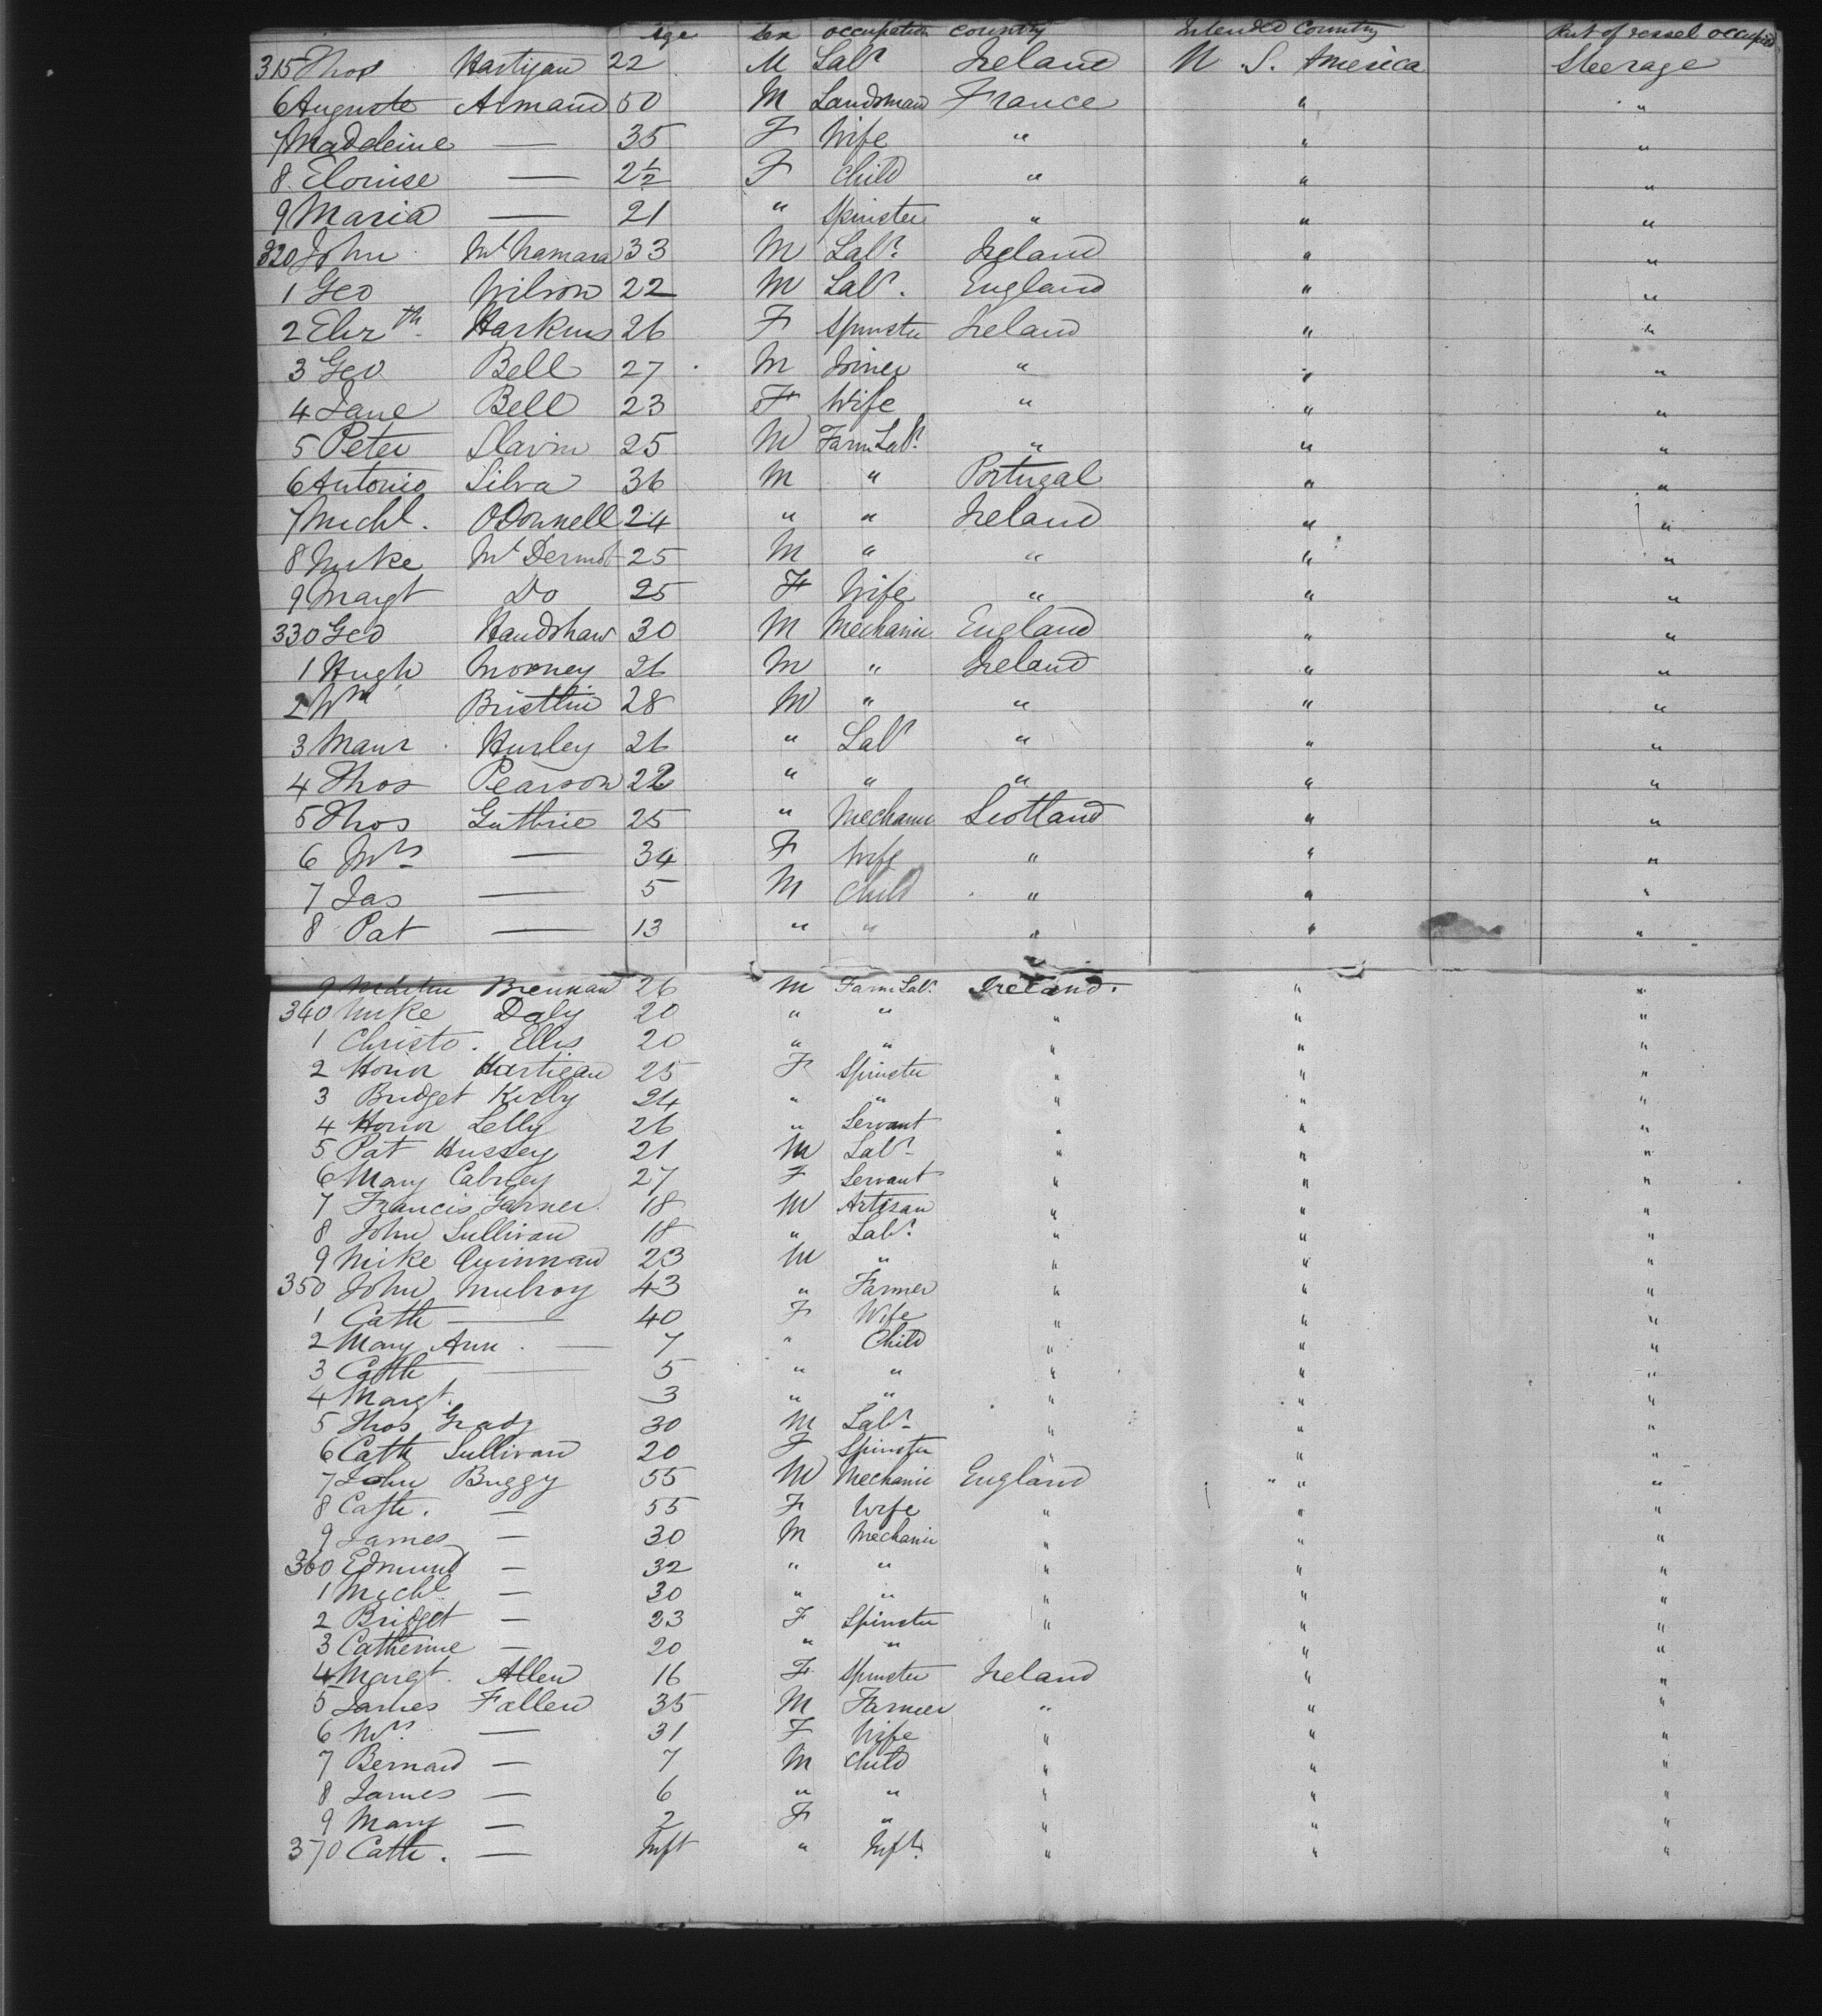 Age Sex occupation country Intended Country Part of vessel occupied
315 Thos Hartigan 22 M Labr Ireland U. S. America Steerage
6 Auguste Armand 50 M Landsman France " "
7 Madeleine — 35 F Wife " " "
8 Elouise — 2½ F Child " " "
9 Maria — 21 " Spinster " " "
320 John McNamara 33 M Labr Ireland " "
1 Geo Wilson 22 M Labr. England " "
2 Elizth Harkins 26 F Spinster Ireland " "
3 Geo Bell 27 M Joiner " " "
4 Jane Bell 23 F Wife " " "
5 Peter Slavin 25 M Farm Labr " " "
6 Antonio Silva 36 M " Portugal " "
7 Michl. ODonnell 24 " " Ireland " "
8 Mike McDermot 25 M " " " "
9 Margt Do 25 F Wife " " "
330 Geo Handshaw 30 M Mechanic England " "
1 Hugh Mooney 26 M " Ireland " "
2 Wm 28 M " " " "
3 Maur Hurley 26 " Labr " " "
4 Thos Pearson 22 " " " " "
5 Thos Guthrie 25 " Mechanic Scotland " "
6 Mrs — 34 F Wife " " "
7 Jas — 5 M Child " " "
8 Pat — 13 " " " " "
9 Brennan 26 M Farm Labr Ireland. " "
340 Mike Daly 20 " " " " "
1 Christo. Ellis 20 " " " " "
2 Honor Hartigan 25 F Spinster " " "
3 Bridget Kirby 24 " " " " "
4 Honor Lelly 26 " Servant " " "
5 Pat Hussey 21 M Labr " " "
6 Mary 27 F Servant " " "
7 Francis Garner 18 M Artisan " " "
8 John Sullivan 18 " Labr " " "
9 Mike Quinnan 23 M " " " "
350 John Mulroy 43 " Farmer " " "
1 Cath — 40 F Wife " " "
2 Mary Ann. — 7 " Child " " "
3 Cath — 5 " " " " "
4 Margt. 3 " " " " "
5 Thos Grady 30 M Labr " " "
6 Cath Sullivan 20 F Spinster " " "
7 John Buggy 55 M Mechanic England " " "
8 Cath. — 55 F Wife " " "
9 James — 30 M Mechanic " " "
360 Edmund — 32 " " " " "
1 Michl — 30 " " " " "
2 Bridget — 23 F Spinster " " "
3 Catherine — 20 " " " "
4 Margt. Allen 16 F Spinster Ireland " "
5 James Fallen 35 M Farmer " " "
6 Mrs. — 31 F Wife " " "
7 Bernard — 7 M Child " " "
8 James — 6 " " " " "
9 Mary — 2 F " " " "
370 Cath. — Inft " Inft. " " "